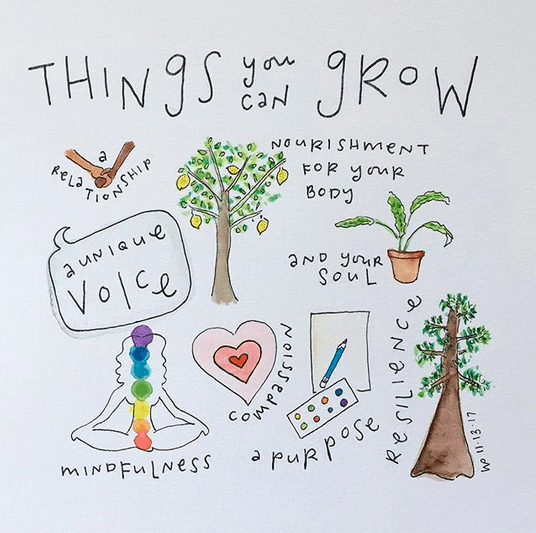 THINGS you can GROW
a
RELATIONSHIP
NOURISHMENT
FOR YOUR
BODY
a unique
VOICE
AND YOUR
SOUL
MINDFULNESS
COMPASSION
a purpose
RESILIENCE
WP 11.13.17